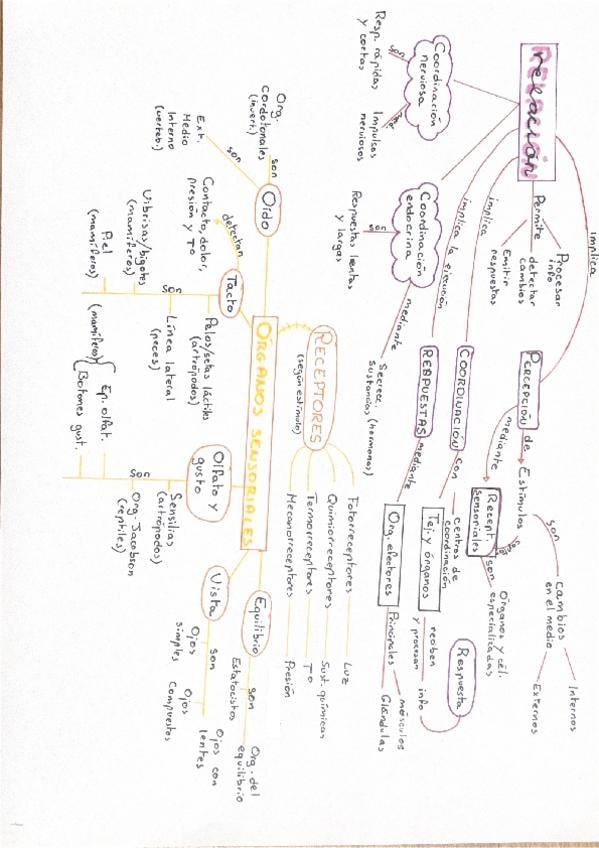 relación
RELACIÓN
implica
Permite
Procesar
info
detectar
cambios
Emitir
respuestas
PERCEPCIÓN de Estímulos
son
cambios
en el medio
Internos
Externos
mediante
Recept.
sensoriales
son
Órganos y cél.
especializadas
implica
COORDINACIÓN con
centros de
coordinación
Tej. y órganos
reciben info
y procesan
Respuesta
implica la ejecución
RESPUESTAS mediante
Org. efectores
Principales
músculos
Glándulas
Coordinación
nerviosa
son
Resp. rápidas
y cortas
Impulsos
nerviosos
Coordinación
endocrina
son
Respuestas lentas
y largas
mediante
Secrec.
sustancias (hormonas)
RECEPTORES
(según estímulo)
Fotorreceptores
Luz
Quimiorreceptores
Sust. químicas
Termorreceptores
Tº
Mecanorreceptores
Presión
ÓRGANOS SENSORIALES
Oído
son
Org.
cordotonales
(invert.)
son
Ext.
Medio
Interno
(verteb.)
Tacto
detectan
Contacto, dolor,
presión y Tº
son
Pelos/setas táctiles
(artrópodos)
Línea lateral
(peces)
Vibrisas/bigotes
(mamíferos)
Piel
(mamíferos)
Olfato y
gusto
son
Sensilias
(artrópodos)
Org. Jacobson
(reptiles)
(mamíferos)
Ep. olfat.
Botones gust.
Equilibrio
son
Estatocistos
Org. del
equilibrio
Vista
son
Ojos
simples
Ojos
compuestos
Ojos con
lentes